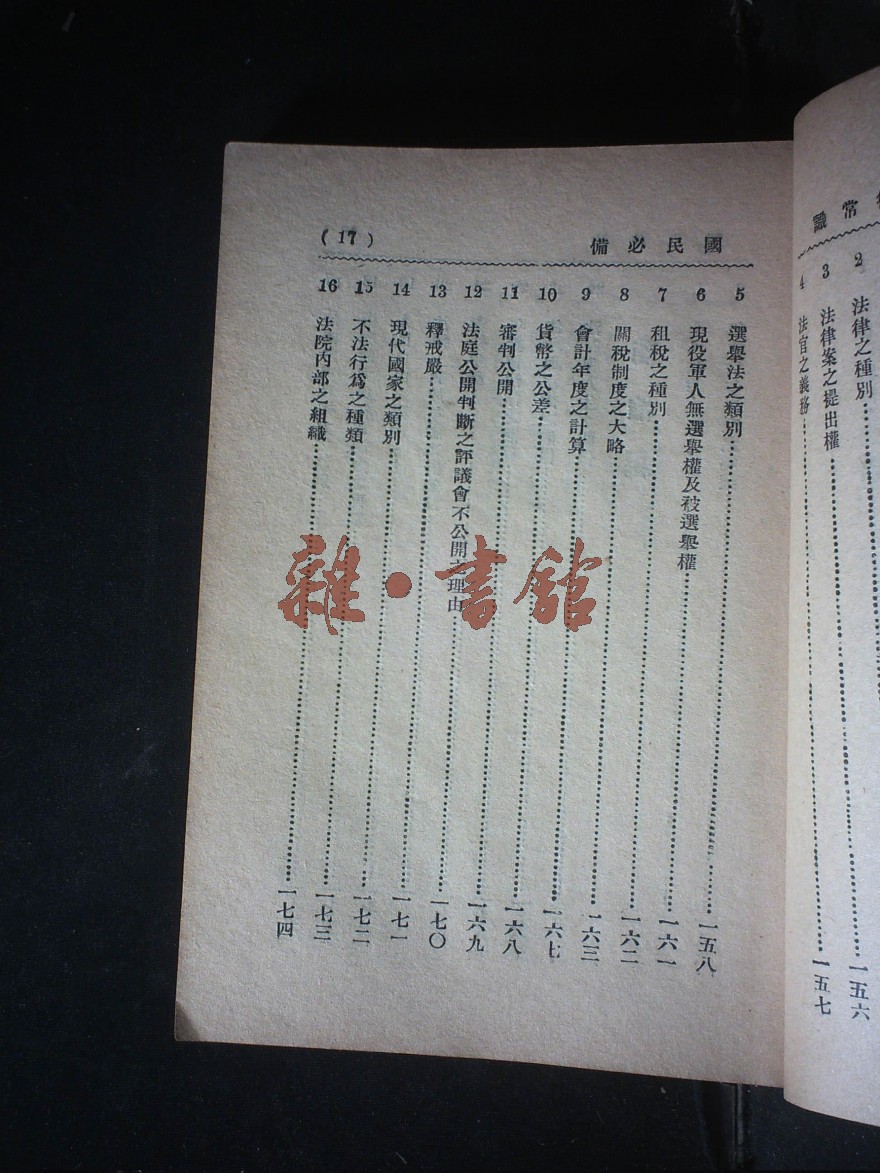 常識
2 法律之種別
3 法律案之提出權 一五六
4 法官之義務 一五七
國民必備 (17)
5 選舉法之類別 一五八
6 現役軍人無選舉權及被選舉權 一六一
7 租稅之種別 一六二
8 關稅制度之大略 一六三
9 會計年度之計算 一六七
10 貨幣之公差 一六八
11 審判公開 一六九
12 法庭公開判斷之評議會不公開之理由 一七〇
13 釋戒嚴 一七一
14 現代國家之類別 一七二
15 不法行爲之種類 一七三
16 法院內部之組織 一七四
雜·書館